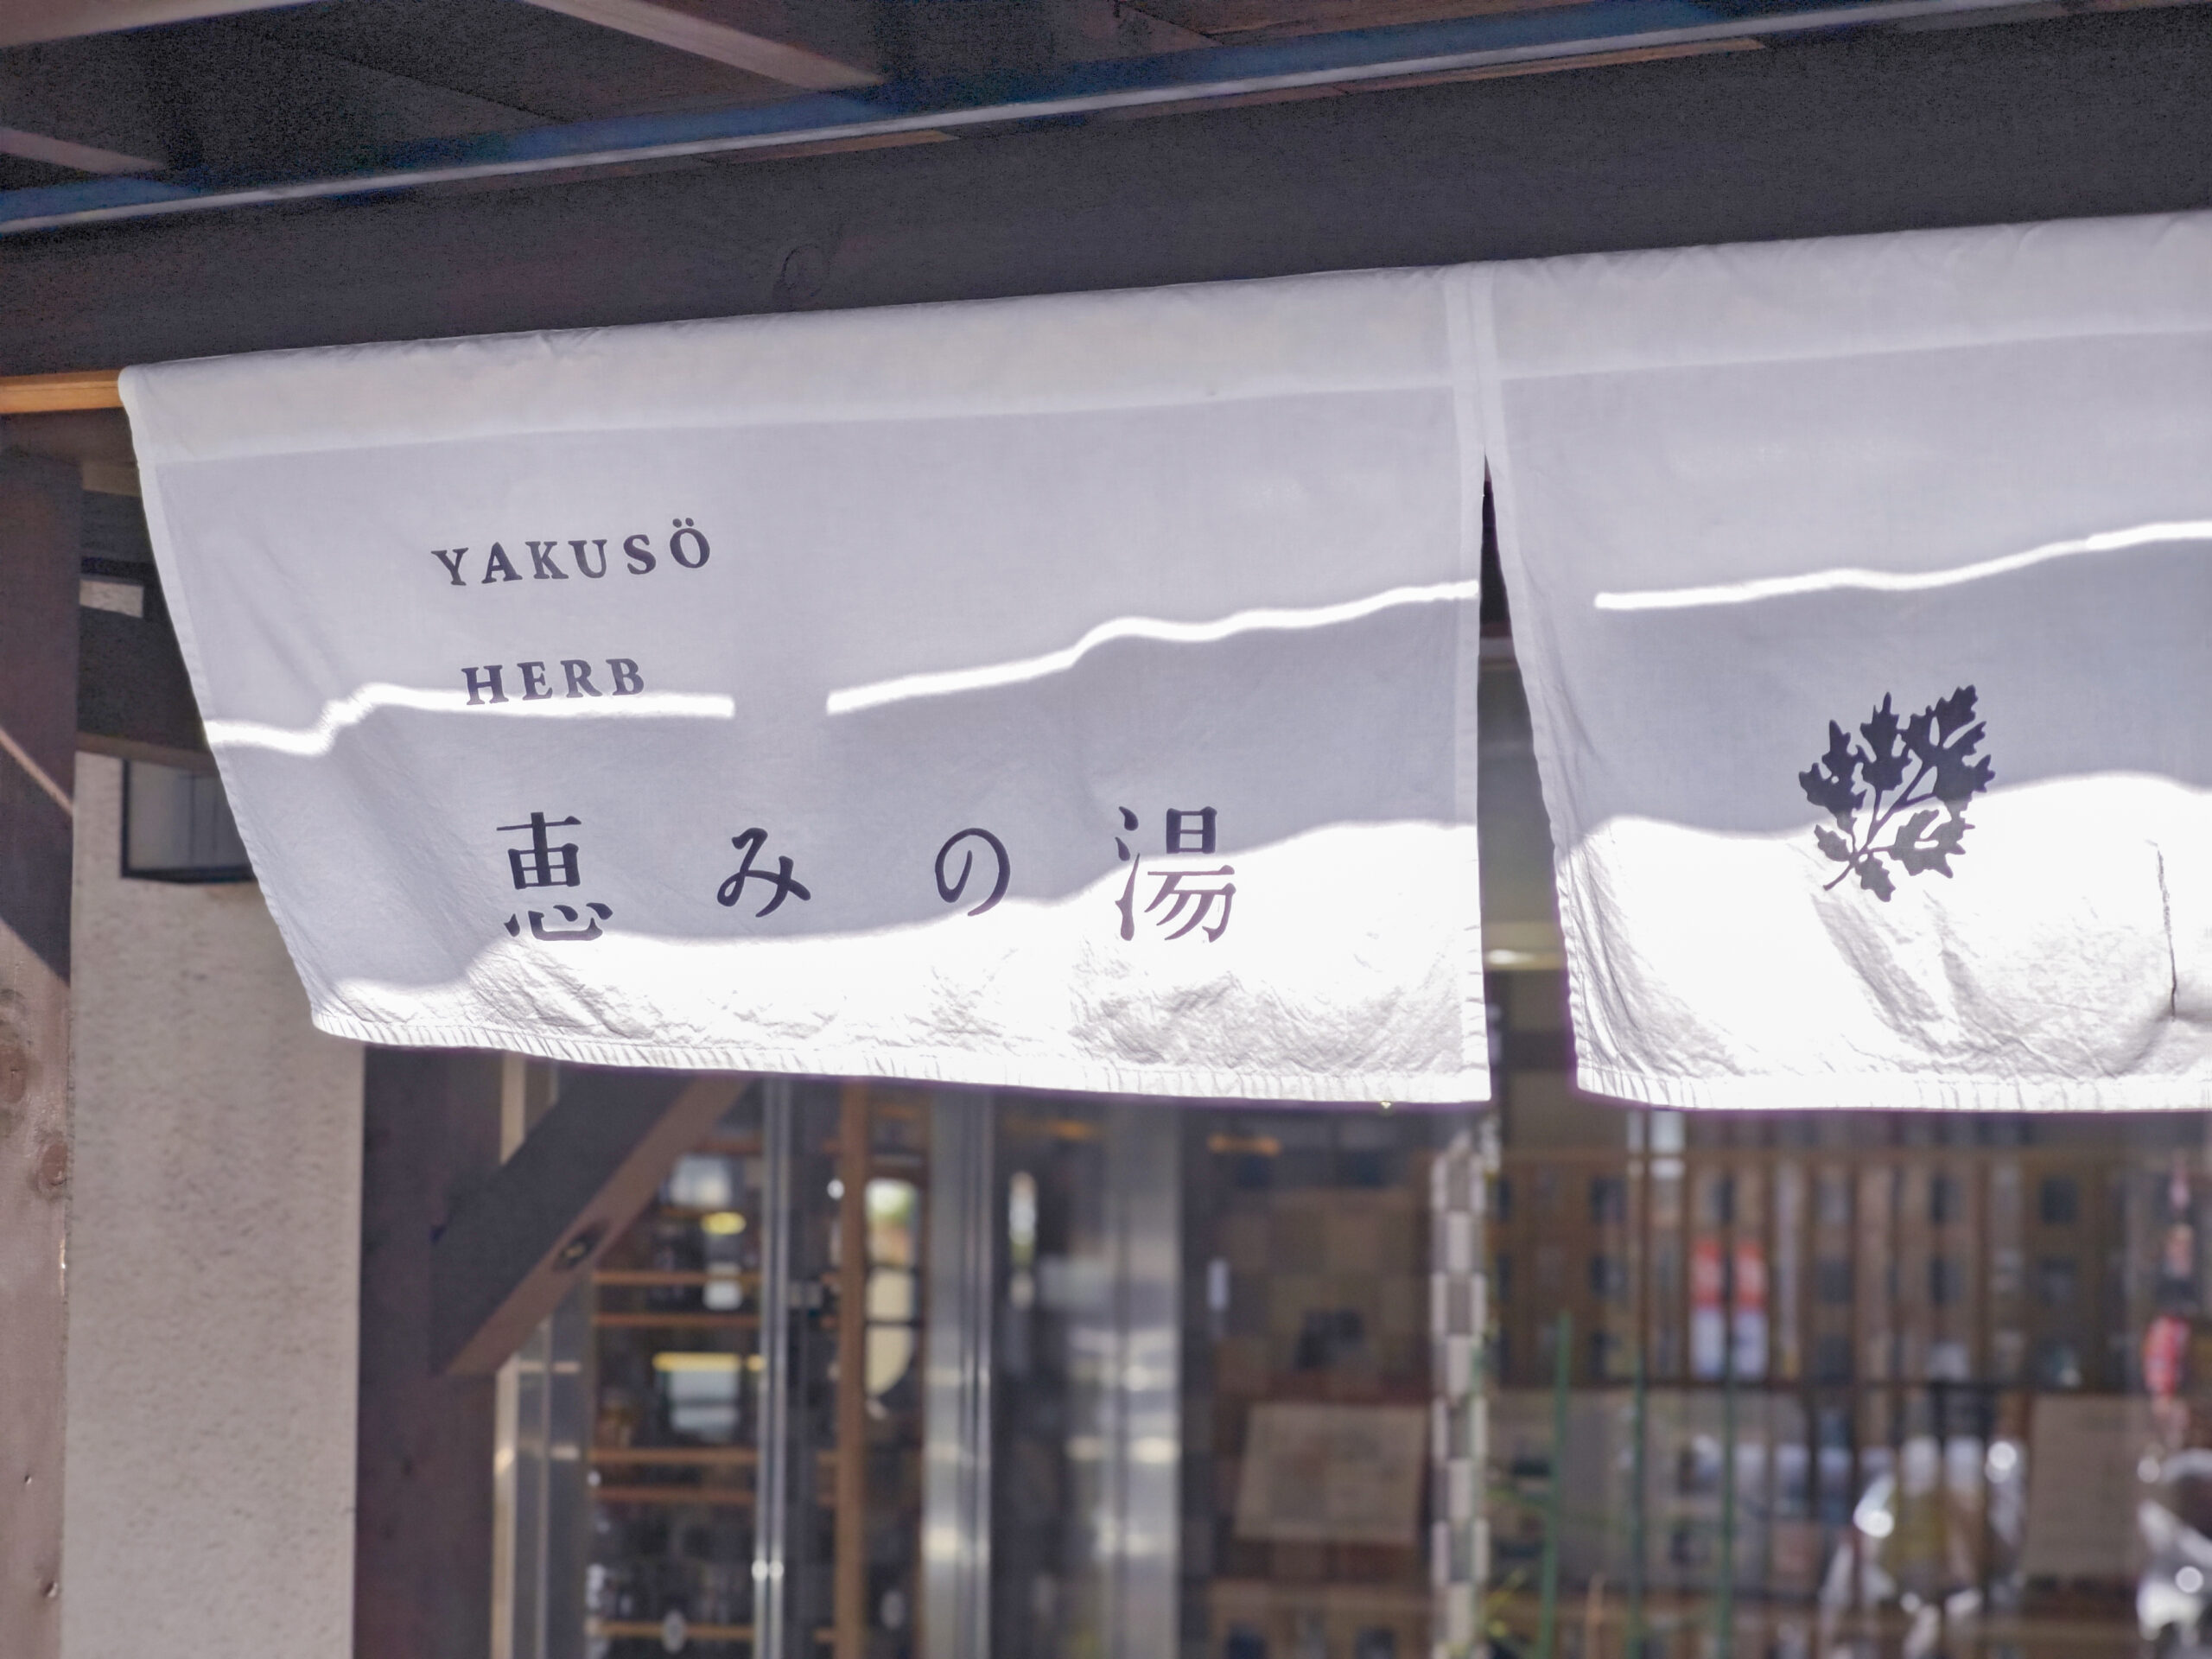 YAKUSÖ
HERB
恵みの湯